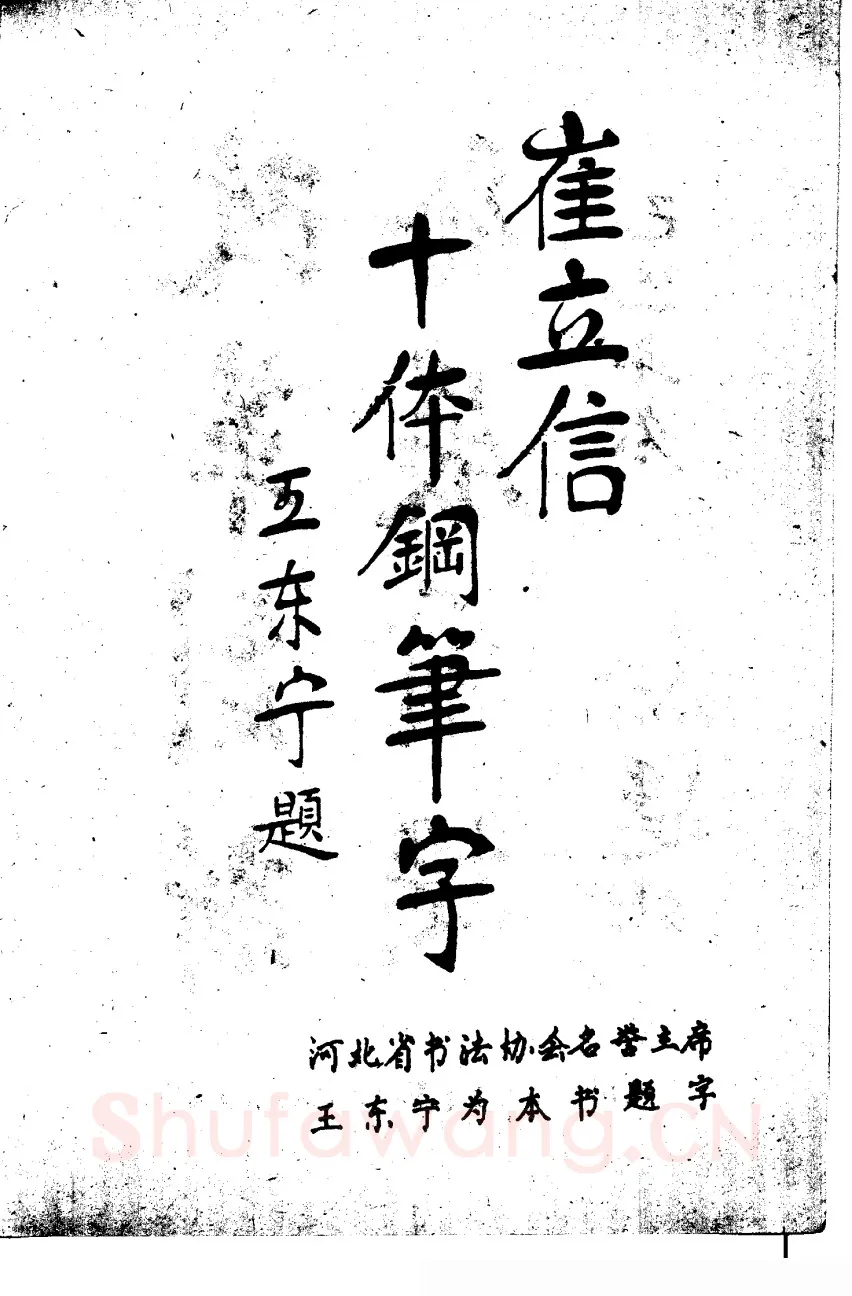 崔立信
十体鋼筆字
王东宁题
河北省书法协会名誉主席
王东宁为本书题字
Shufawang.CN